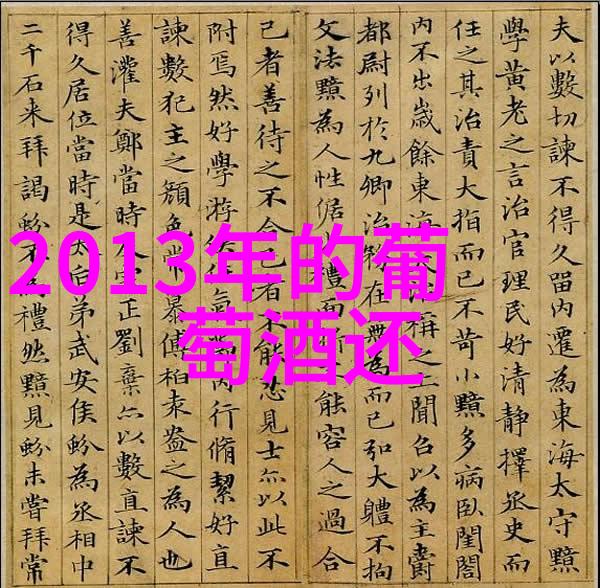 2013年的葡
萄酒还
夫以數切諫不得久留內遷為東海太守黯
學黃老之言治官理民好清靜擇丞史而
任之其治責大指而已不苛小黯多病臥閨閤
內不出歲餘東海稱之上聞召以為主爵
都尉列於九卿治務在無為而已弘大體不拘
文法黯為人性倨少禮面折能容人之過合
己者善待之不合己者不能忍見士亦以此不
附焉然好學游俠氣節內行脩絜好直
諫數犯主之顏色常慕傅柏袁盎之為人也
善灌夫鄭當時宗正劉棄亦以數直諫不
得久居位當時是太后弟武安侯蚡為丞相中
二千石来拜謁蚡不為禮然黯見蚡未嘗拜常